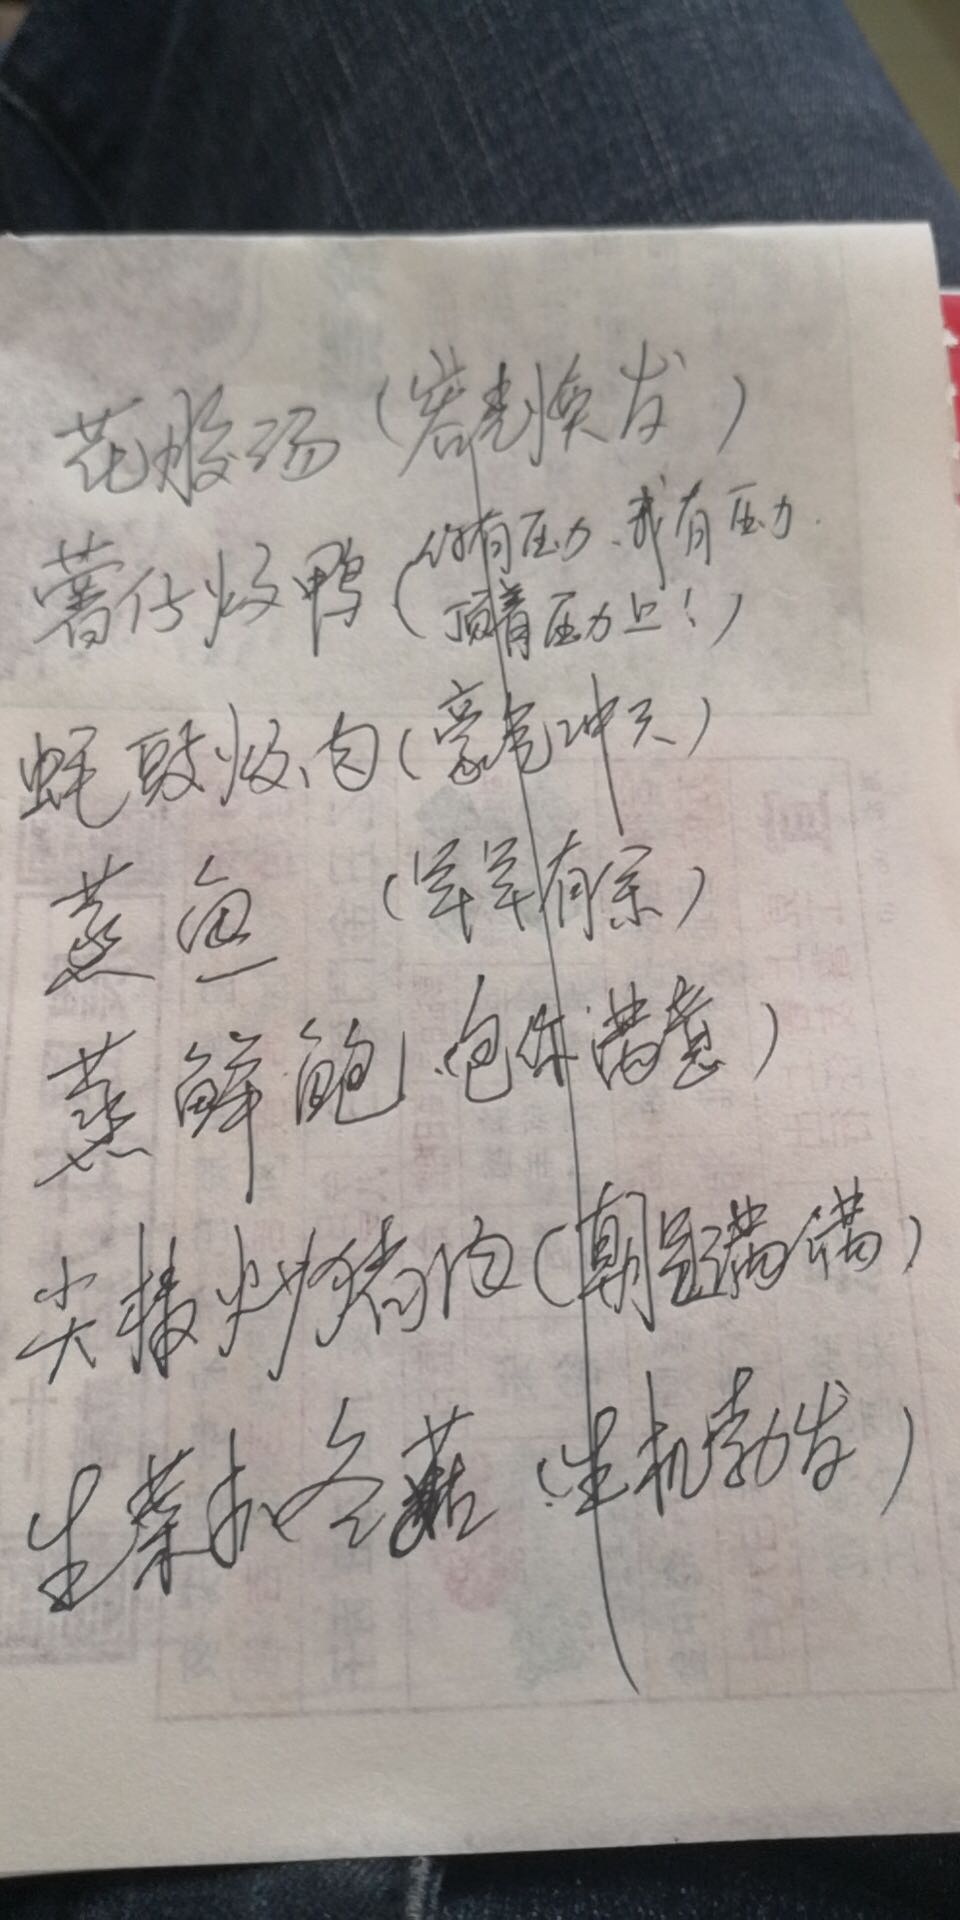 花胶汤(容光焕发)
薯仔炆鸭(你有压力、我有压力.
顶着压力上!)
蚝豉炆肉(豪气冲天)
蒸鱼(年年有余)
蒸鲜鲍(包你满意)
尖椒炒猪肉(朝足满满)
生菜扣冬菇(生机勃发)